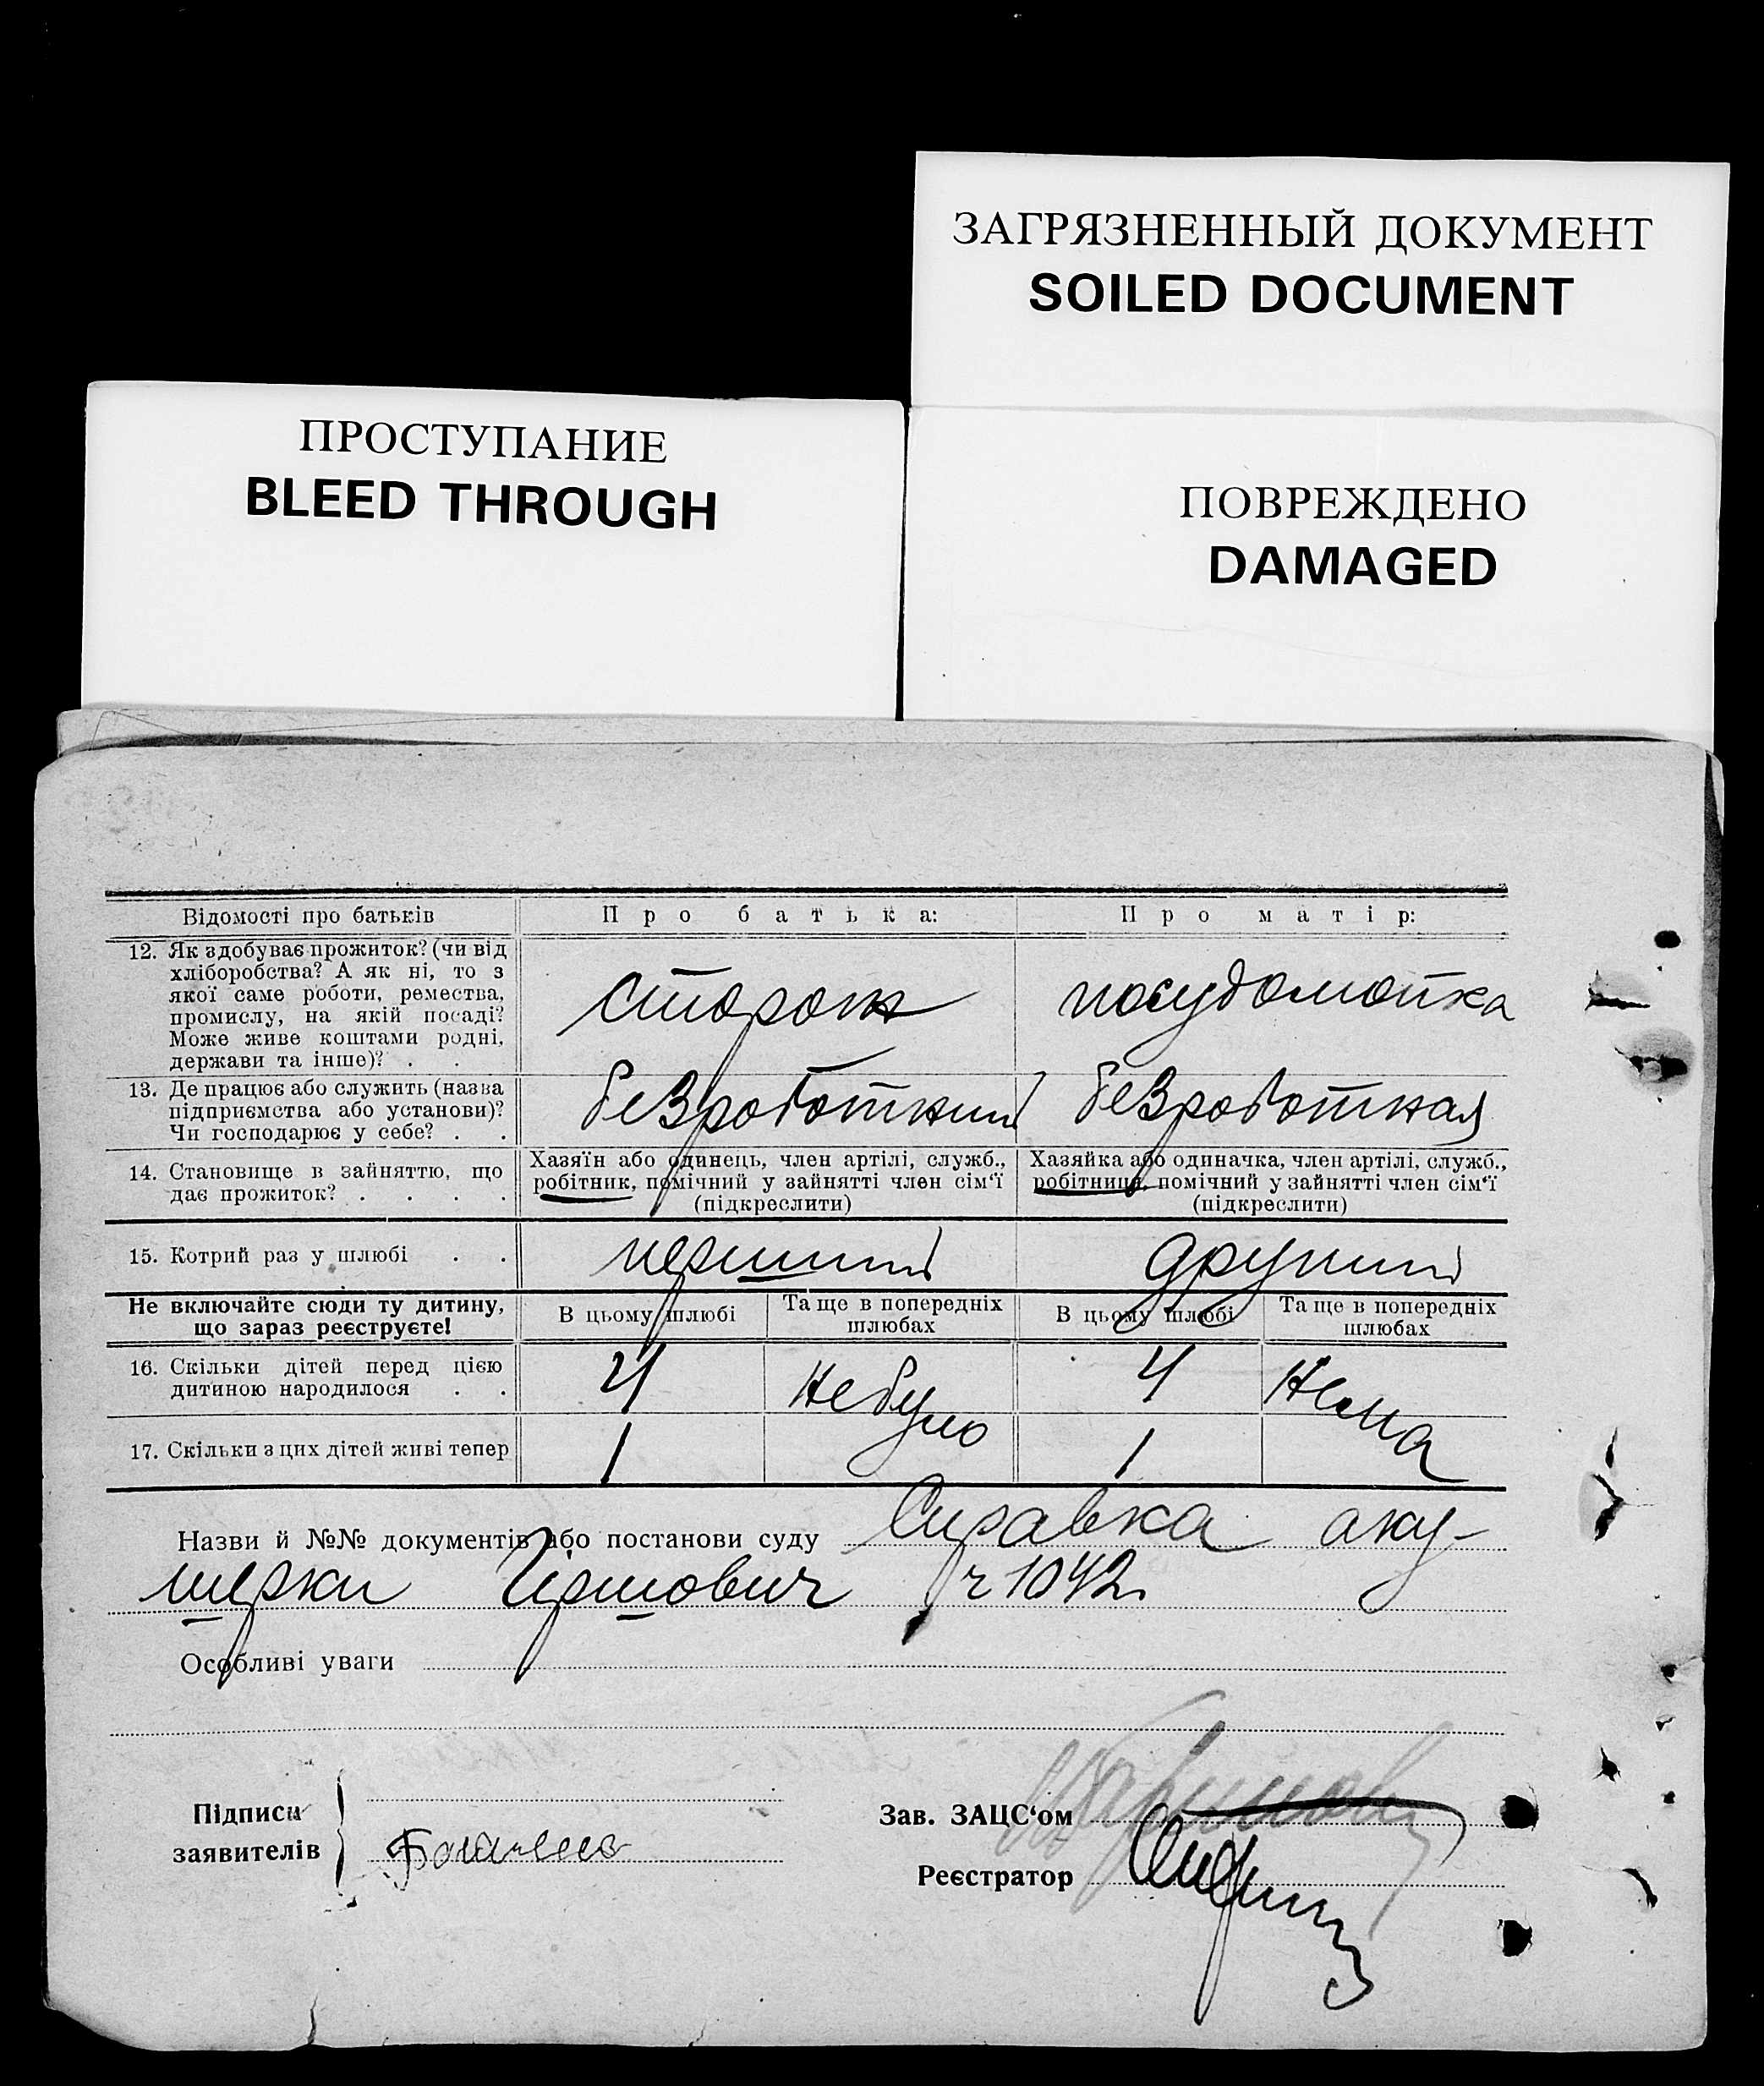 ЗАГРЯЗНЕННЫЙ ДОКУМЕНТ
SOILED DOCUMENT
ПРОСТУПАНИЕ
BLEED THROUGH
ПОВРЕЖДЕНО
DAMAGED
Відомості про батьків Про батька: Про матір:
12. Як здобуває прожиток? (чи від
хліборобства? А як ні, то з
якої саме роботи, ремества,
промислу, на якій посаді?
Може живе коштами родні,
держави та інше)? .
сторож посудомойка
13. Де працює або служить (назва
підприємства або установи)?
Чи господарює у себе? . .
безроботний безроботная
14. Становище в зайняттю, що
дає прожиток? . . . .
Хазяїн або одинець, член артілі, служб.,
робітник, помічний у зайнятті член сім‘ї
(підкреслити)
Хазяйка або одиначка, член артілі, служб.,
робітниця, помічний у зайнятті член сім‘ї
(підкреслити)
15. Котрий раз у шлюбі . . перший другий
Не включайте сюди ту дитину,
що зараз реєструєте!
В цьому шлюбі Та ще в попередніх
шлюбах
В цьому шлюбі Та ще в попередніх
шлюбах
16. Скільки дітей перед цією
дитиною народилося . .
4 не було 4 нема
17. Скільки з цих дітей живі тепер 1 1
Назви й №№ документів або постанови суду Справка аку-
шерки Гіршович ч 1042
Особливі уваги
Підписи
заявителів
Зав. ЗАЦС‘ом
Реєстратор